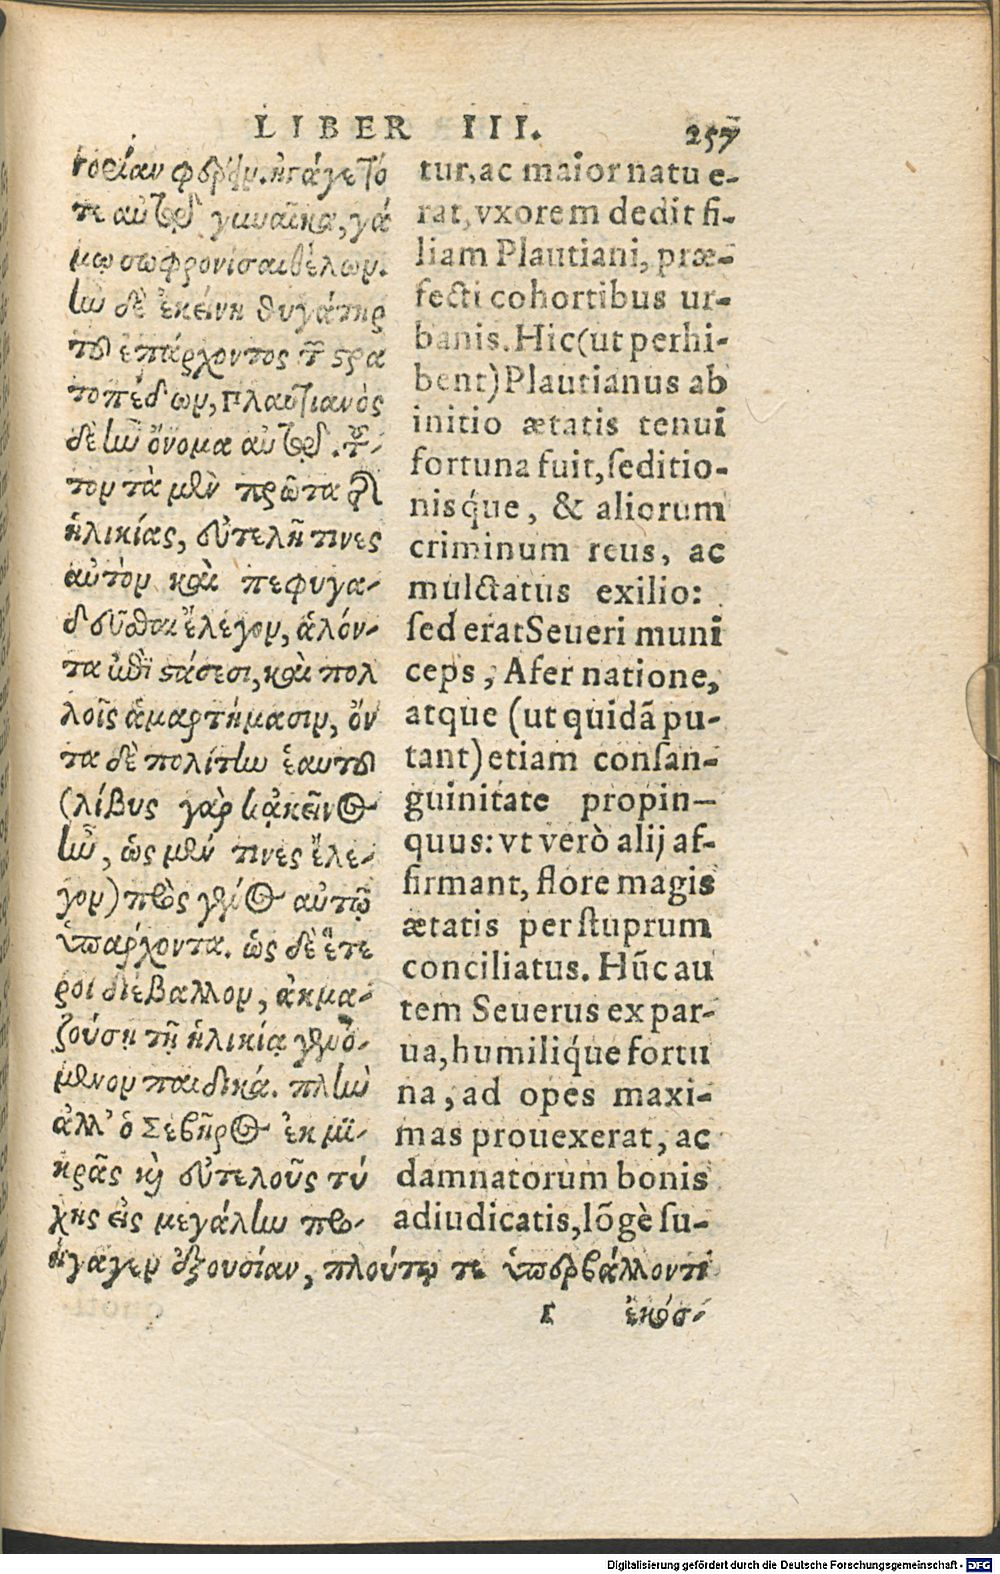 LIBER III. 257
τορίαν φέρειν. ἠγάγετό
τε αὐτῷ γυναῖκα, γά
μῳ σωφρονίσαι θέλων.
ἦν δὲ ἐκείνη θυγάτηρ
τοῦ ἐπάρχοντος τῶν στρα
τοπέδων, Πλαυτιανὸς
δὲ ἦν ὄνομα αὐτῷ. τοῦ-
τον τὰ μὲν πρῶτα τῆς
ἡλικίας, εὐτελῆ τινες
αὐτὸν καὶ πεφυγα-
δεῦσθαι ἔλεγον, ἁλόν-
τα ἐπὶ στάσεσι, καὶ πολ
λοῖς ἁμαρτήμασιν, ὄν
τα δὲ πολίτην ἑαυτοῦ
(λίβυς γὰρ κᾀκεῖνος
ἦν, ὡς μέν τινες ἔλε-
γον) πρὸς γένος αὐτῷ
ὑπάρχοντα. ὡς δὲ ἕτε
ροι διέβαλλον, ἀκμα-
ζούσῃ τῇ ἡλικίᾳ γενό-
μενον παιδικά. πλὴν
ἀλλ' ὁ Σεβῆρος ἐκ μι-
κρᾶς καὶ εὐτελοῦς τύ
χης εἰς μεγάλην προ-
ήγαγεν ἐξουσίαν, πλούτῳ τε ὑπερβάλλοντι
tur, ac maior natu e-
rat, vxorem dedit fi-
liam Plautiani, præ-
fecti cohortibus ur-
banis. Hic (ut perhi-
bent) Plautianus ab
initio ætatis tenui
fortuna fuit, ſeditio-
nisq́ue, & aliorum
criminum reus, ac
mulctatus exilio:
ſed erat Seueri muni
ceps, Afer natione,
atque (ut quidã pu-
tant) etiam conſan-
guinitate propin-
quus: vt verò alij af-
firmant, flore magis
ætatis per ſtuprum
conciliatus. Hũc au
tem Seuerus ex par-
ua, humiliq́ue fortu
na, ad opes maxi-
mas prouexerat, ac
damnatorum bonis
adiudicatis, lõgè ſu-
r ἐκόσ-
Digitalisierung gefördert durch die Deutsche Forschungsgemeinschaft - DFG